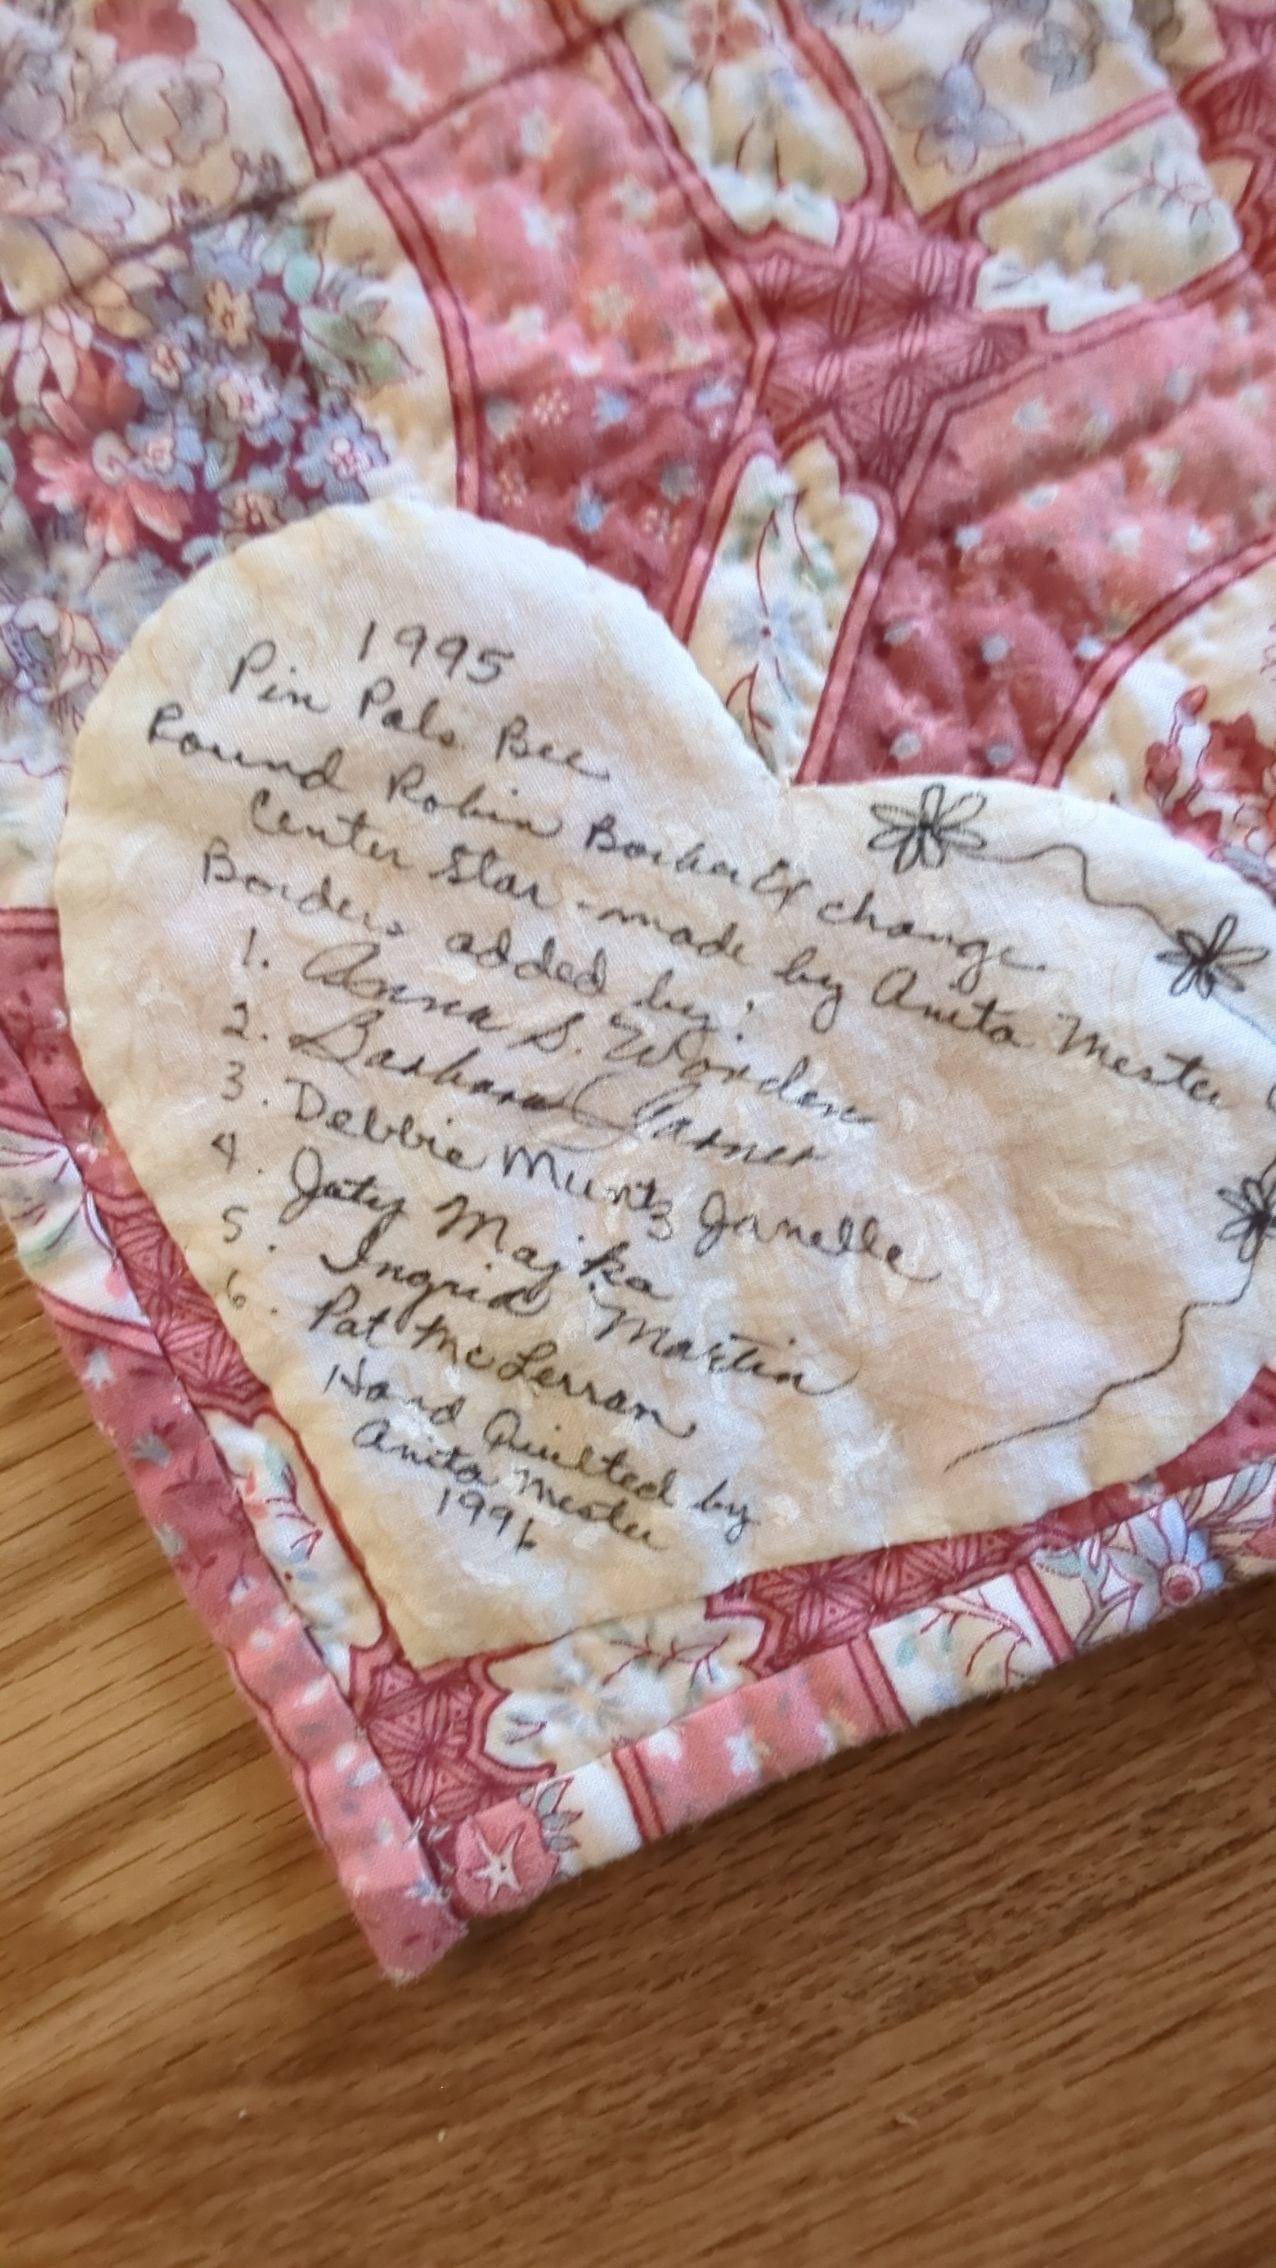 1995
Pin Pals Bee
Round Robin Border Exchange
Center Star - made by Anita Mester
Borders added by:
1. Anna S. Worden
2. Barbara Garner
3. Debbie Muntz Janelle
4. Majka
5. Ingrid Martin
6. Pat McLerran
Hand Quilted by
Anita Mester
1996